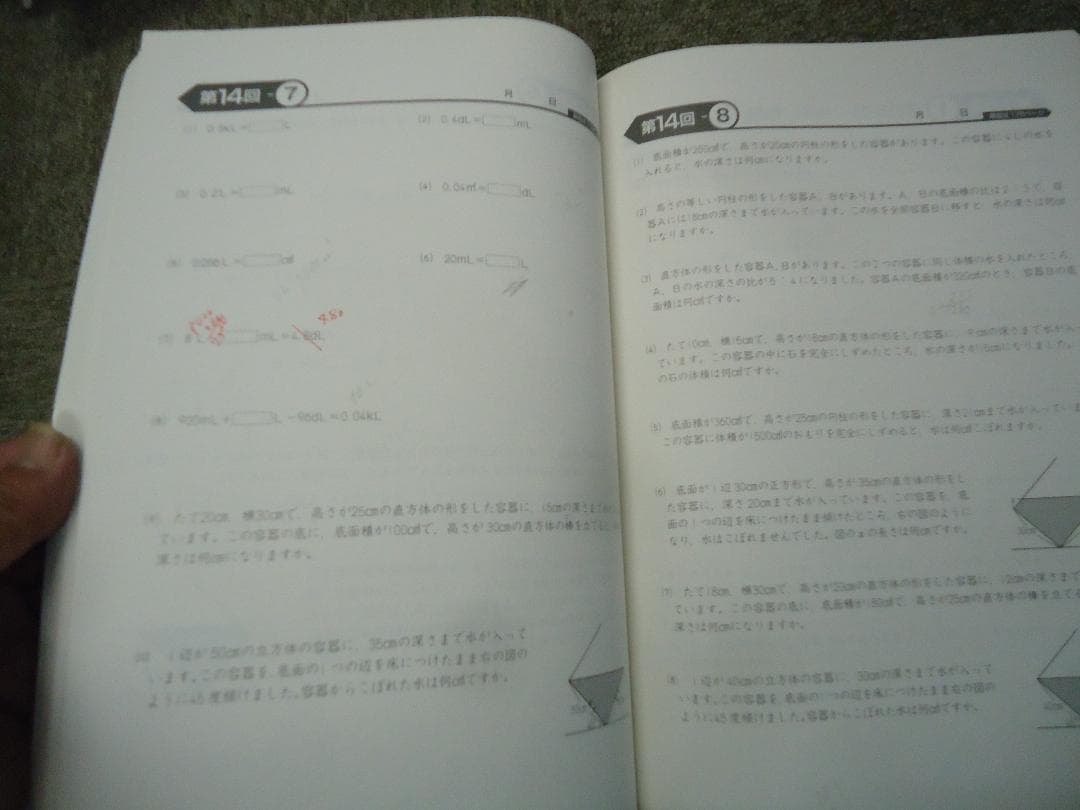 第14回-7
月 日
(2) 0.6dL=□mL
(3) 0.2L=□mL
(4) 0.04㎥=□dL
(6) 20mL=□L
4.80
(8) 920mL+□L-96dL=0.04kL
(9) たて20cm、横30cmで、高さが25cmの直方体の形をした容器に、15cmの深さまで
ています。この容器の底に、底面積が100㎠で、高さが30cmの直方体の棒を立てると
深さは何cmになりますか。
(10) 1辺が50cmの立方体の容器に、35cmの深さまで水が入って
います。この容器を、底面の1つの辺を床につけたまま右の図の
ように45度傾けました。容器からこぼれた水は何㎤ですか。
第14回-8
月 日
(1) 底面積が250㎠で、高さが20cmの円柱の形をした容器があります。この容器に4Lの水を
入れると、水の深さは何cmになりますか。
(2) 高さの等しい円柱の形をした容器A、Bがあります。A、Bの底面積の比は2:3で、容
器Aには18cmの深さまで水が入っています。この水を全部容器Bに移すと、水の深さは何cm
になりますか。
(3) 直方体の形をした容器A、Bがあります。この2つの容器に同じ体積の水を入れたところ
A、Bの水の深さの比が5:4になりました。容器Aの底面積が320㎠のとき、容器Bの底
面積は何㎠ですか。
(4) たて10cm、横15cmで、高さが18cmの直方体の形をした容器に、9cmの深さまで水が入っ
ています。この容器の中に石を完全にしずめたところ、水の深さが15cmになりました。
の石の体積は何㎤ですか。
(5) 底面積が360㎠で、高さが25cmの円柱の形をした容器に、深さ21cmまで水が入っていま
この容器に体積が1500㎤のおもりを完全にしずめると、水は何㎤こぼれますか。
(6) 底面が1辺30cmの正方形で、高さが35cmの直方体の形をし
た容器に、深さ20cmまで水が入っています。この容器を、底
面の1つの辺を床につけたまま傾けたところ、右の図のように
なり、水はこぼれませんでした。図のxの長さは何cmですか。
(7) たて18cm、横30cmで、高さが20cmの直方体の形をした容器に、12cmの深さまで
ています。この容器の底に、底面積が180㎠で、高さが25cmの直方体の棒を立てる
深さは何cmになりますか。
(8) 1辺が40cmの立方体の容器に、30cmの深さまで水が入って
います。この容器を、底面の1つの辺を床につけたまま右の図の
ように45度傾けました。容器からこぼれた水は何㎤ですか。